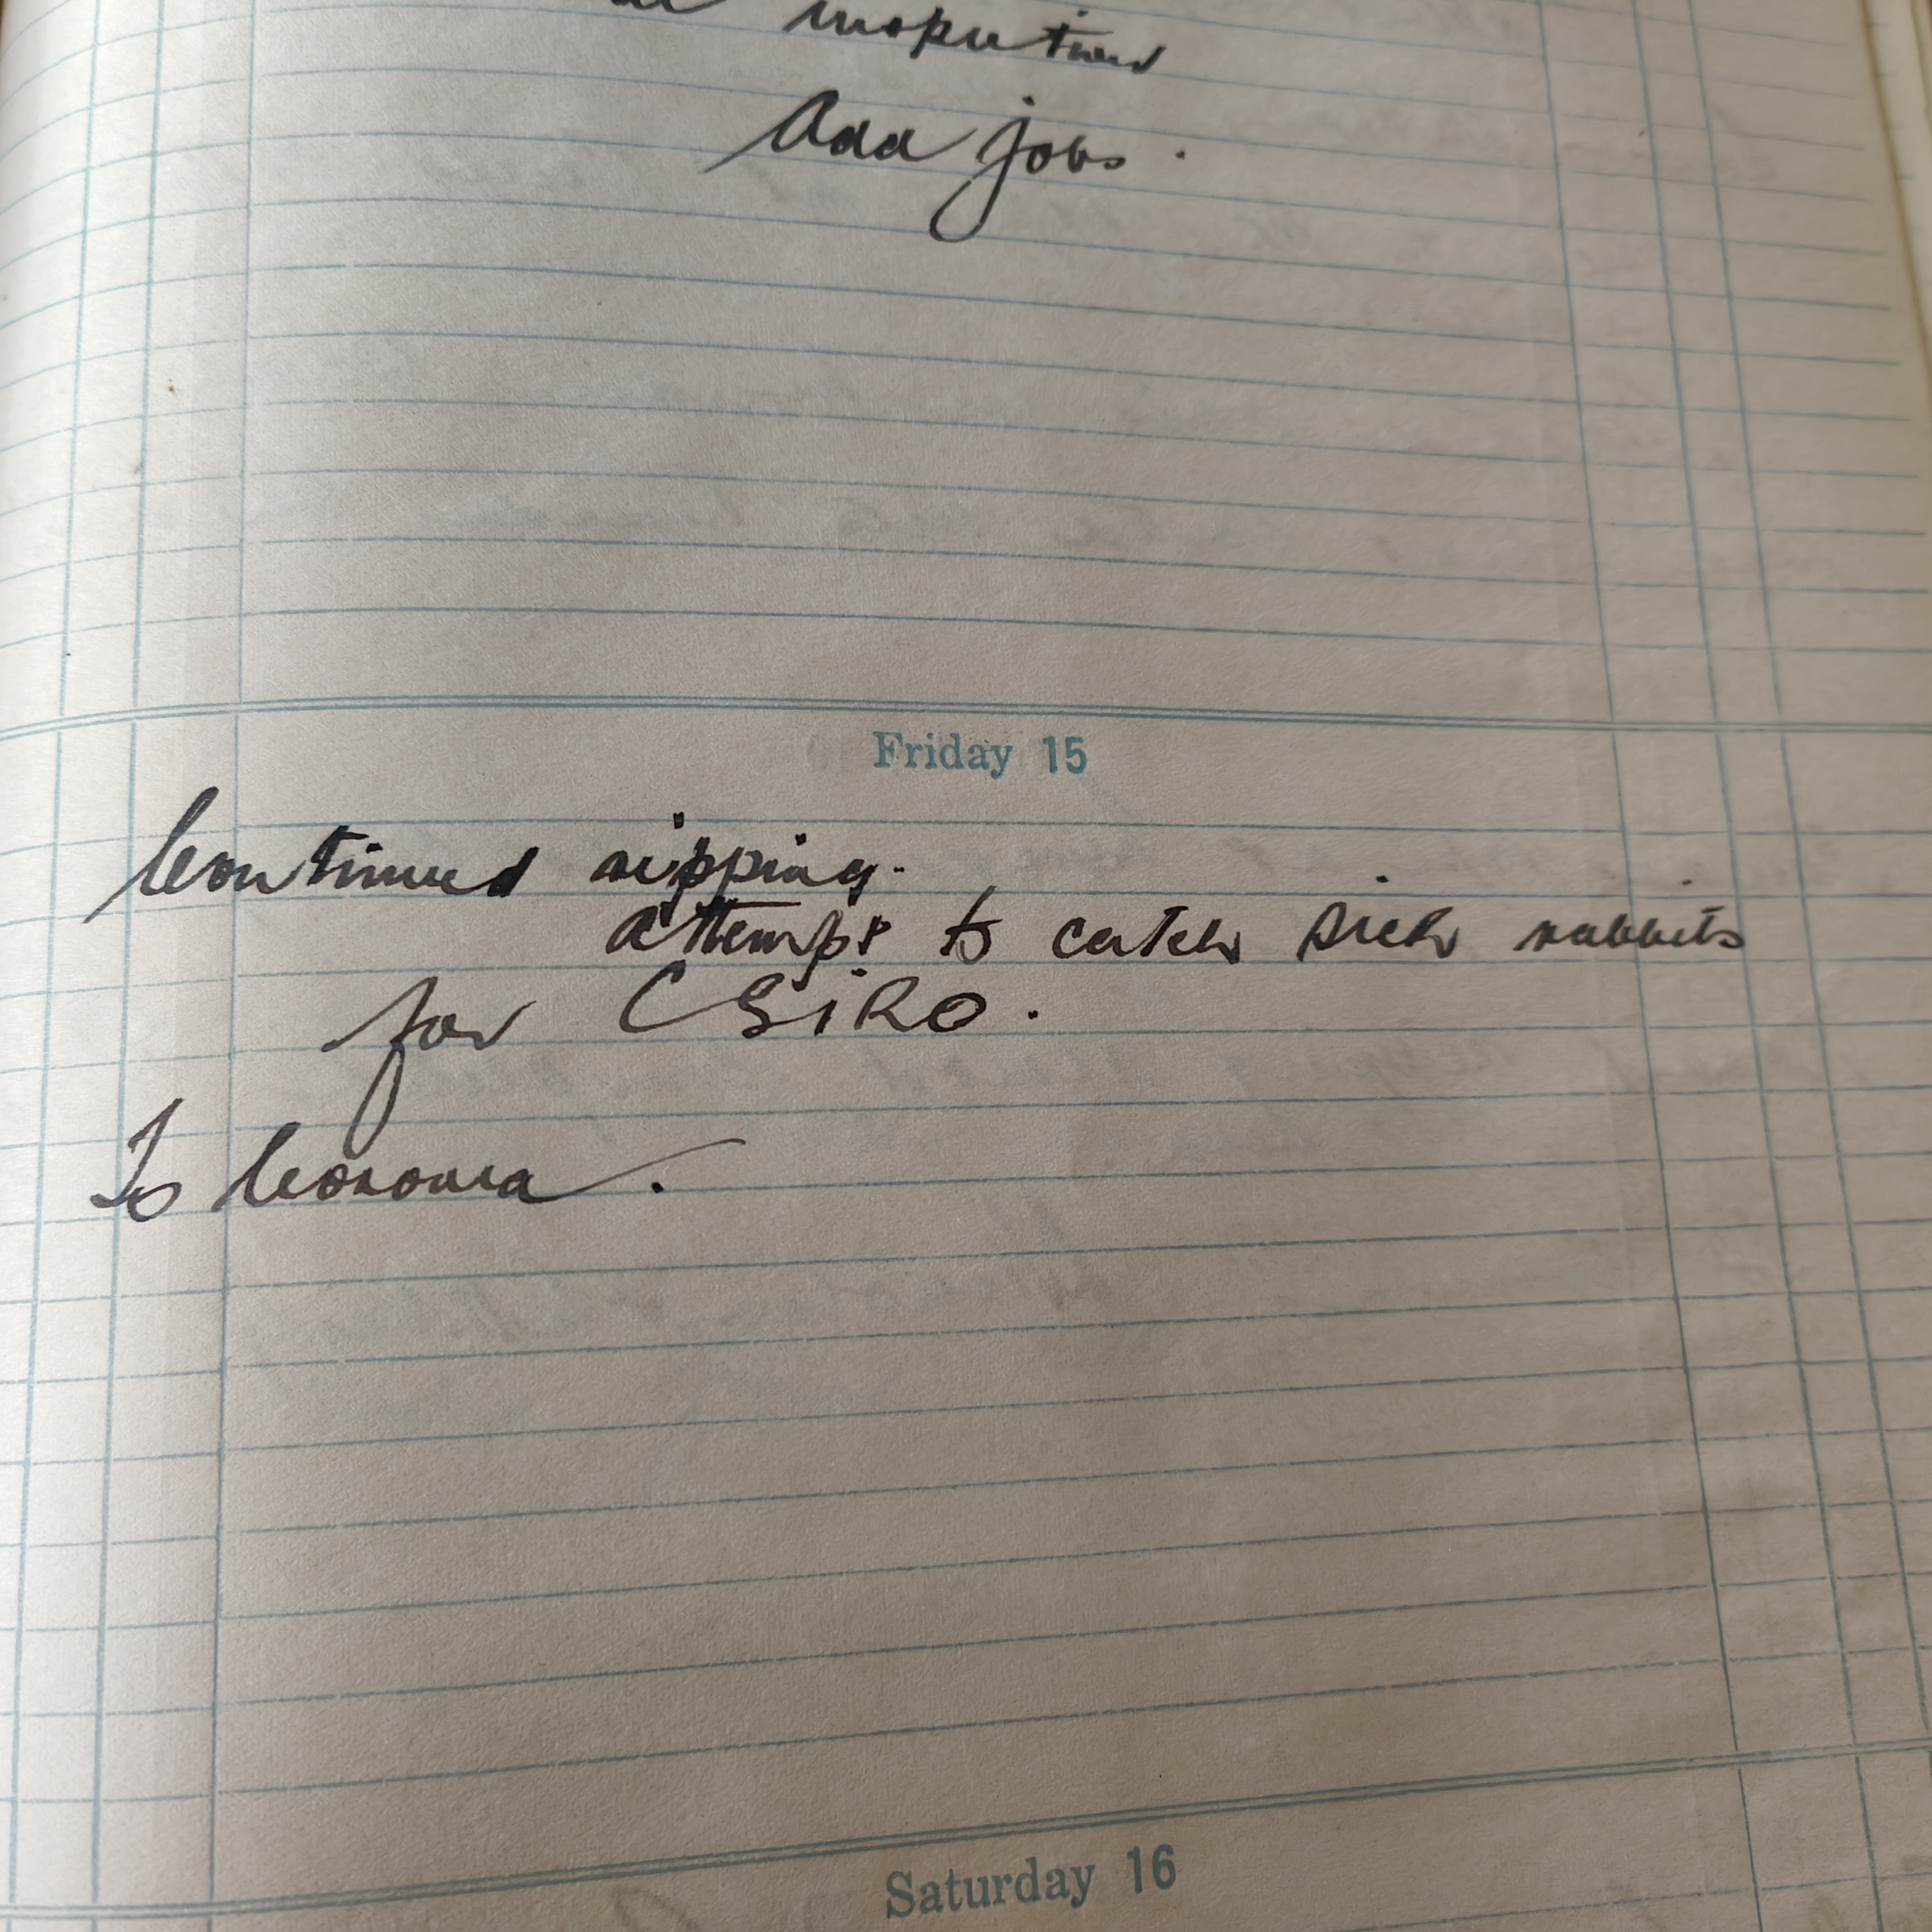 inspection
Odd jobs.
Friday 15
Continued ripping.
attempt to catch sick rabbits
for CSIRO.
To Corowa.
Saturday 16